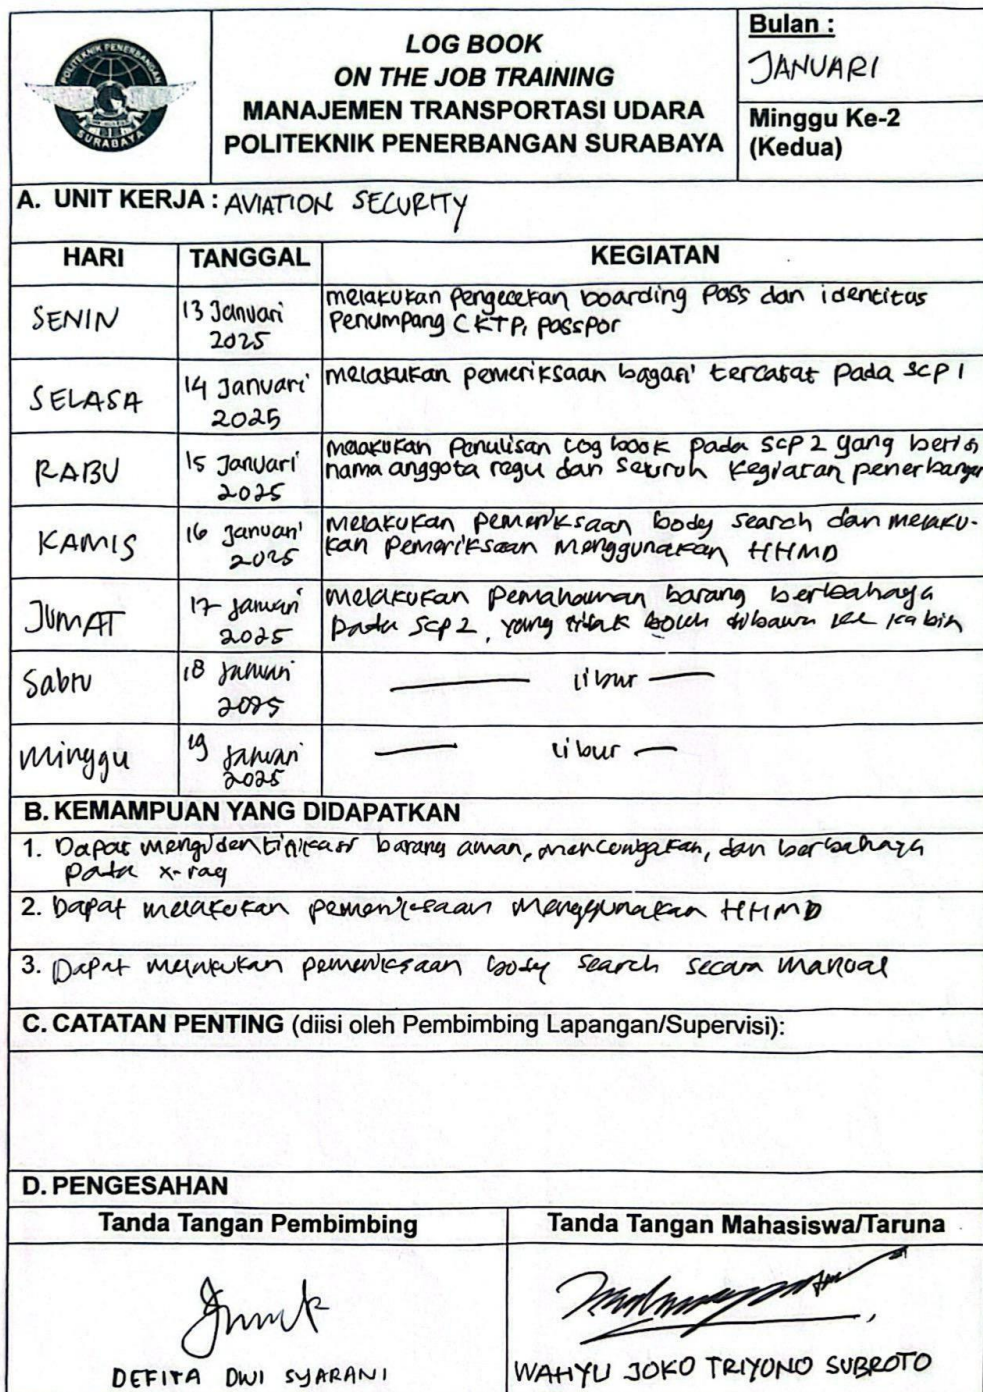 POLITEKNIK PENERBANGAN
SURABAYA
LOG BOOK
ON THE JOB TRAINING
MANAJEMEN TRANSPORTASI UDARA
POLITEKNIK PENERBANGAN SURABAYA
Bulan :
JANUARI
Minggu Ke-2
(Kedua)
A. UNIT KERJA : AVIATION SECURITY
HARI TANGGAL KEGIATAN
SENIN 13 Januari 2025 melakukan pengecekan boarding pass dan identitas
Penumpang CKTP, passpor
SELASA 14 Januari 2025 melakukan pemeriksaan bagasi tercatat pada SCP 1
RABU 15 Januari 2025 melakukan penulisan log book pada SCP 2 yang berisi
nama anggota regu dan seluruh kegiatan penerbangan
KAMIS 16 Januari 2025 melakukan pemeriksaan body search dan melaku-
kan pemeriksaan menggunakan HHMD
JUMAT 17 januari 2025 melakukan pemahaman barang berbahaya
pada SCP 2, yang tidak boleh dibawa ke kabin
Sabtu 18 januari 2025 libur
minggu 19 januari 2025 libur
B. KEMAMPUAN YANG DIDAPATKAN
1. Dapat mengidentifikasi barang aman, mencurigakan, dan berbahaya
pada x-ray
2. Dapat melakukan pemeriksaan menggunakan HHMD
3. Dapat melakukan pemeriksaan body search secara manual
C. CATATAN PENTING (diisi oleh Pembimbing Lapangan/Supervisi):
D. PENGESAHAN
Tanda Tangan Pembimbing Tanda Tangan Mahasiswa/Taruna
DEFITA DWI SYARANI WAHYU JOKO TRIYONO SUBROTO